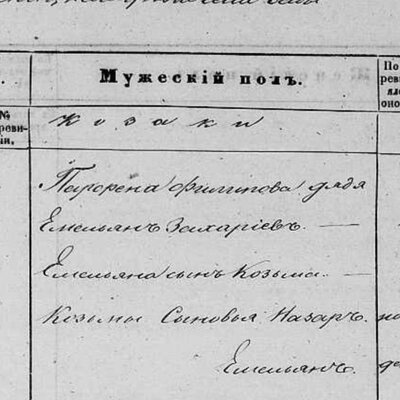 Мужескій полъ.
По
реви
ял
оно
№
реви-
іи.
козаки
Парфена Филипова дядя
Емельянъ Захаріевъ. —
Емельяна сынъ Козьма. —
Козьмы Сыновья Назаръ. на
Емельянъ. да